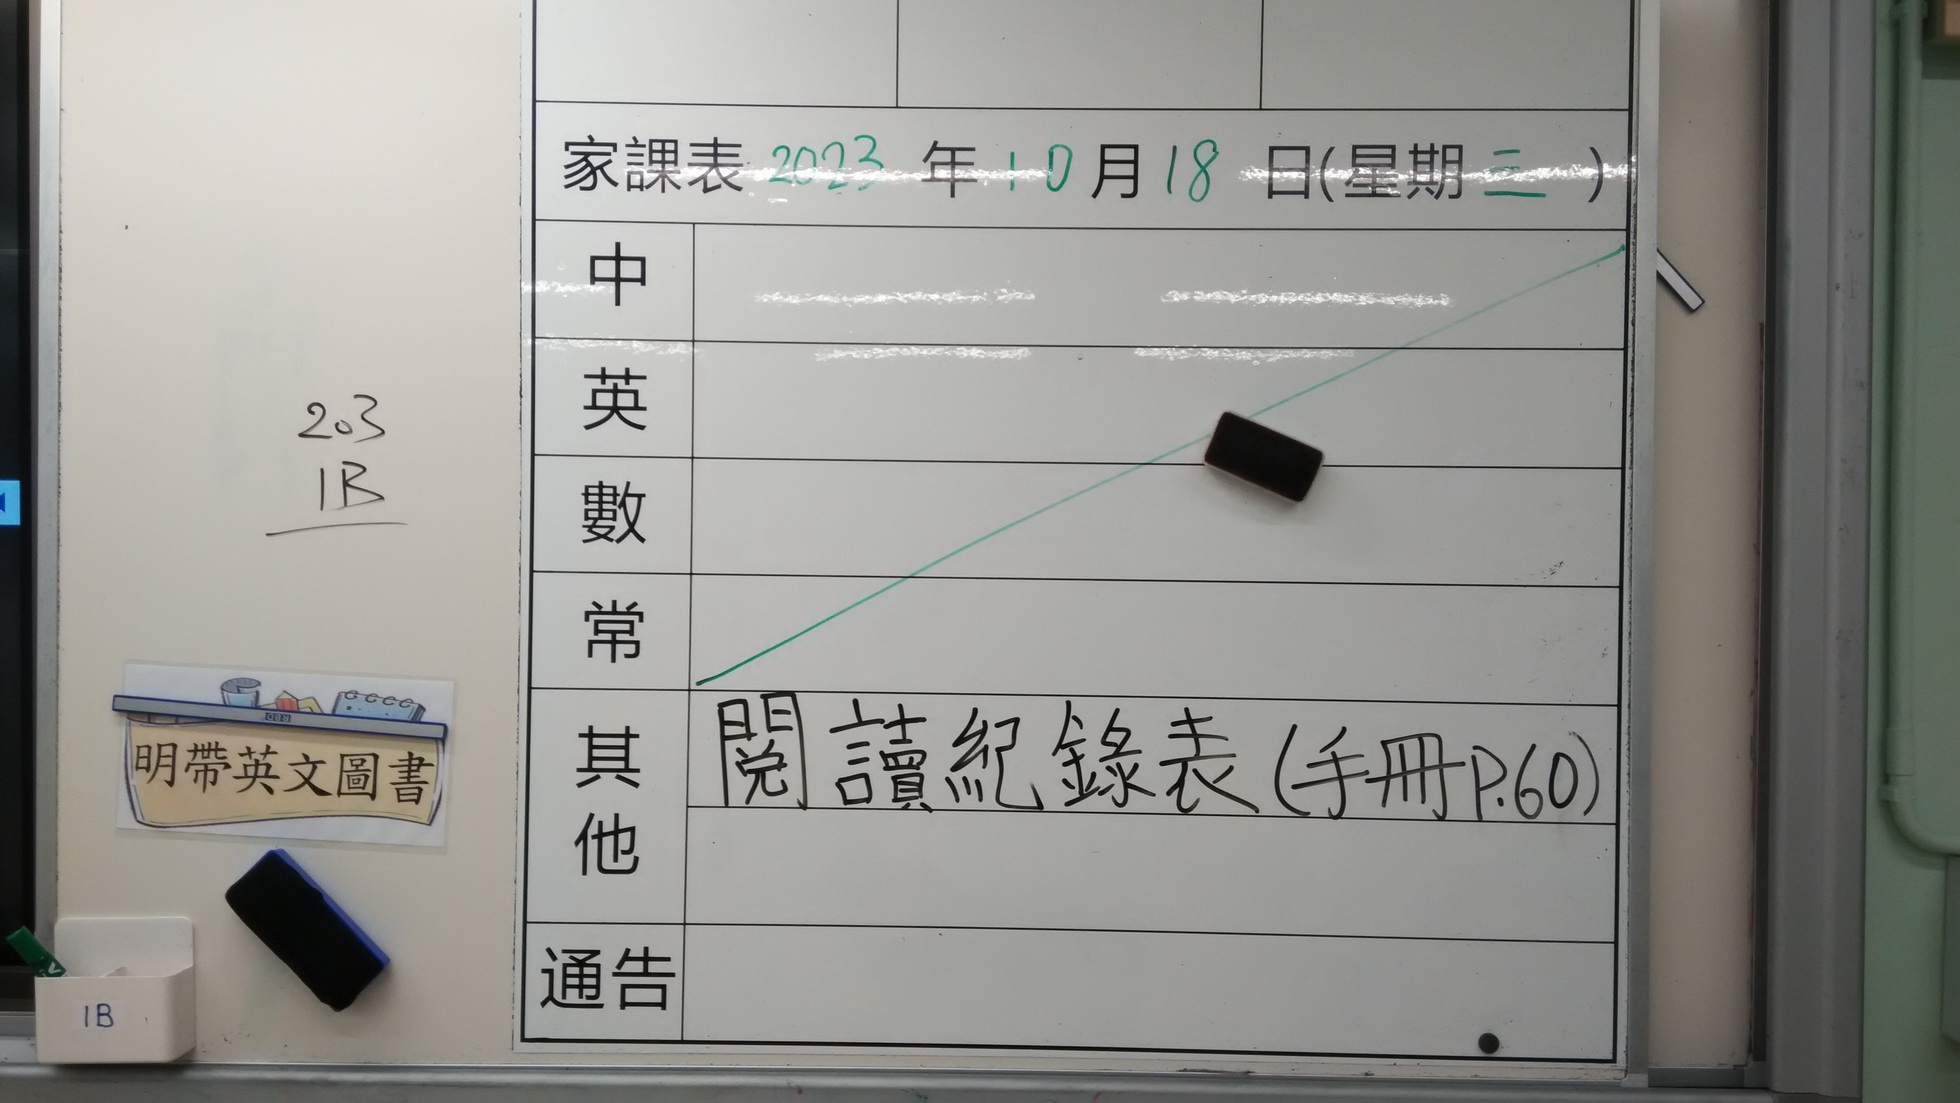 家課表 2023 年 10 月 18 日(星期 三 )
中
英
數
常
其他
閱讀紀錄表(手冊P.60)
通告
203
1B
明帶英文圖書
1B